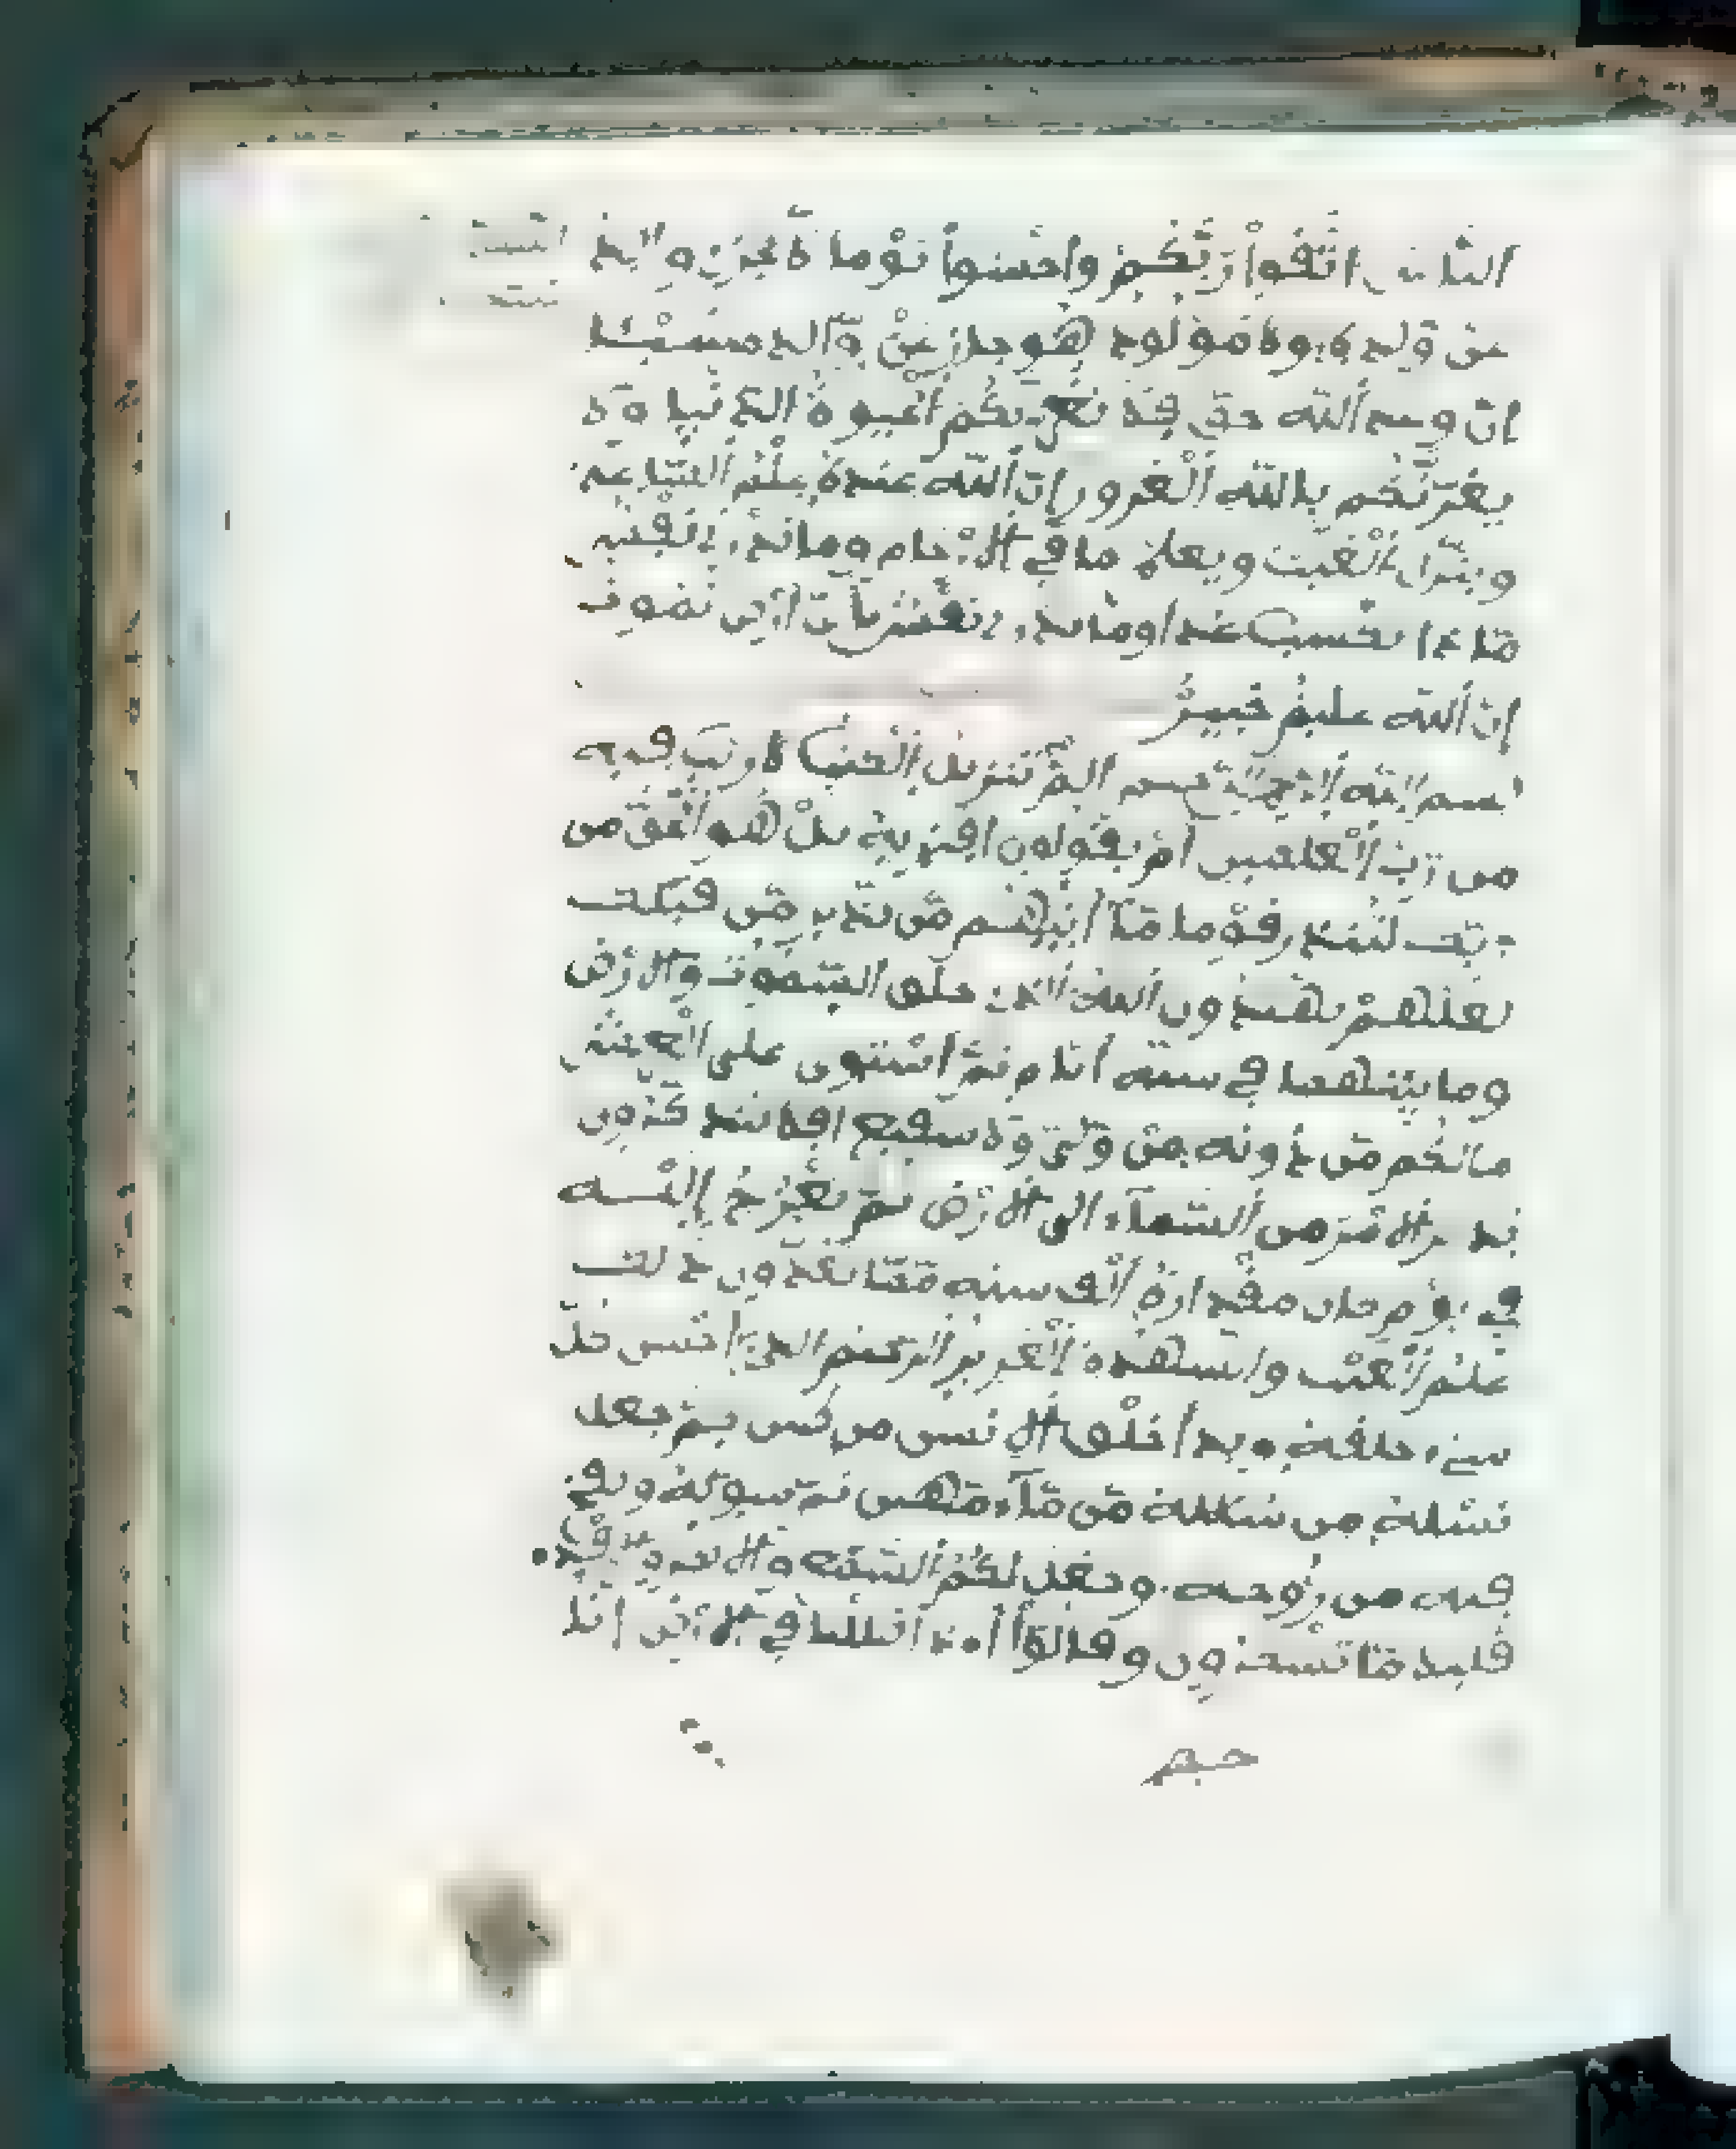 الناس اتقوا ربكم واخشوا يوما لا يجزي والد
عن ولده ولا مولود هو جاز عن والده شيئا
ان وعد الله حق فلا تغرنكم الحيوة الدنيا ولا
يغرنكم بالله الغرور ان الله عنده علم الساعة
وينزل الغيث ويعلم ما في الارحام وما تدري نفس
ماذا تكسب غدا وما تدري نفس باي ارض تموت
ان الله عليم خبير
بسم الله الرحمن الرحيم الم تنزيل الكتب لا ريب فيه
من رب العلمين ام يقولون افتريه بل هو الحق من
ربك لتنذر قوما ما اتيهم من نذير من قبلك
لعلهم يهتدون الله الذي خلق السموت والارض
وما بينهما في ستة ايام ثم استوى على العرش
مالكم من دونه من ولي ولا شفيع افلا تتذكرون
يدبر الامر من السماء الى الارض ثم يعرج اليه
في يوم كان مقداره الف سنة مما تعدون ذلك
علم الغيب والشهدة العزيز الرحيم الذي احسن كل
شيء خلقه وبدا خلق الانسن من طين ثم جعل
نسله من سللة من ماء مهين ثم سويه ونفخ
فيه من روحه وجعل لكم السمع والابصر والافدة
قليلا ما تشكرون وقالوا اذا ضللنا في الارض انا